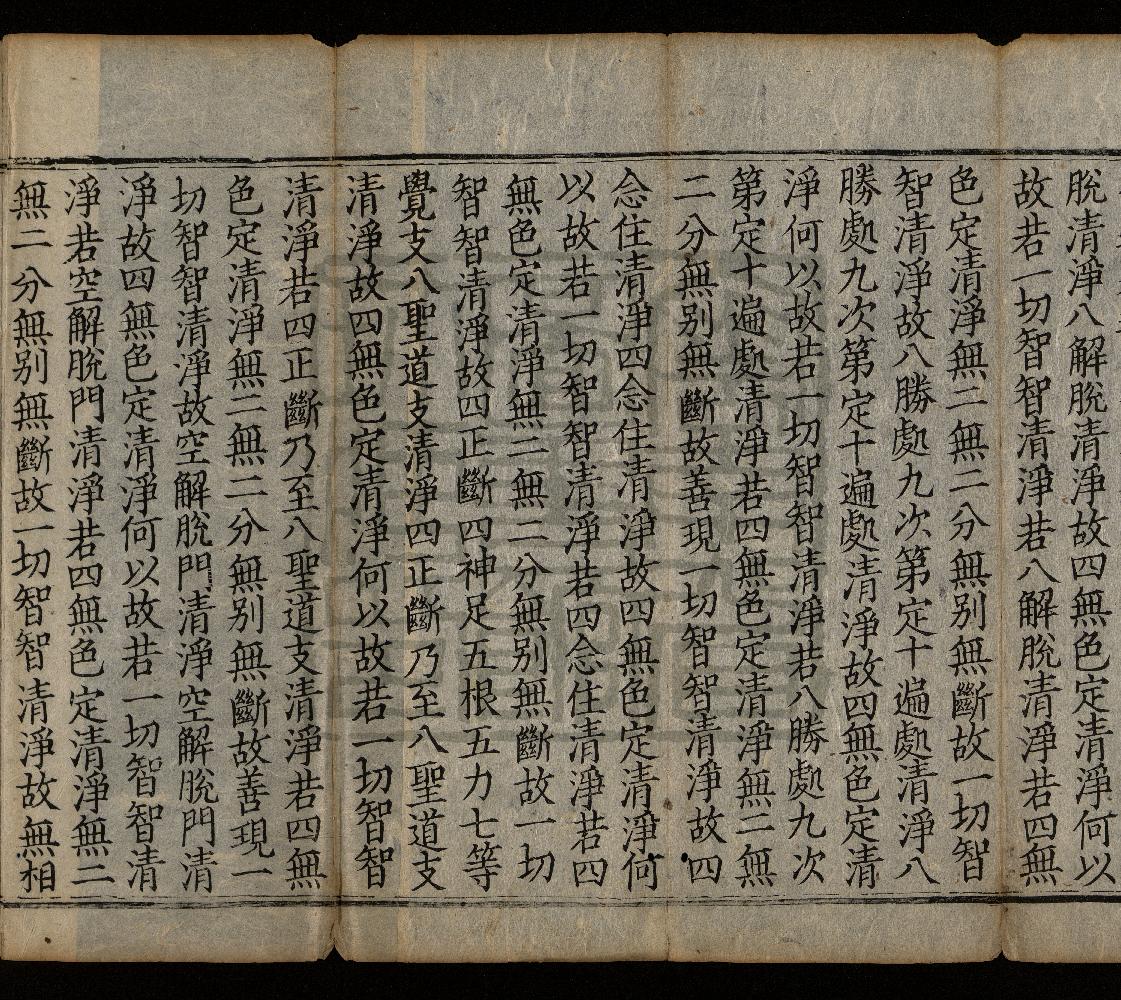 脫清淨八解脫清淨故四無色定清淨何以
故若一切智智清淨若八解脫清淨若四無
色定清淨無二無二分無别無斷故一切智
智清淨故八勝處九次第定十遍處清淨八
勝處九次第定十遍處清淨故四無色定清
淨何以故若一切智智清淨若八勝處九次
第定十遍處清淨若四無色定清淨無二無
二分無别無斷故善現一切智智清淨故四
念住清淨四念住清淨故四無色定清淨何
以故若一切智智清淨若四念住清淨若四
無色定清淨無二無二分無别無斷故一切
智智清淨故四正斷四神足五根五力七等
覺支八聖道支清淨四正斷乃至八聖道支
清淨故四無色定清淨何以故若一切智智
清淨若四正斷乃至八聖道支清淨若四無
色定清淨無二無二分無别無斷故善現一
切智智清淨故空解脫門清淨空解脫門清
淨故四無色定清淨何以故若一切智智清
淨若空解脫門清淨若四無色定清淨無二
無二分無别無斷故一切智智清淨故無相